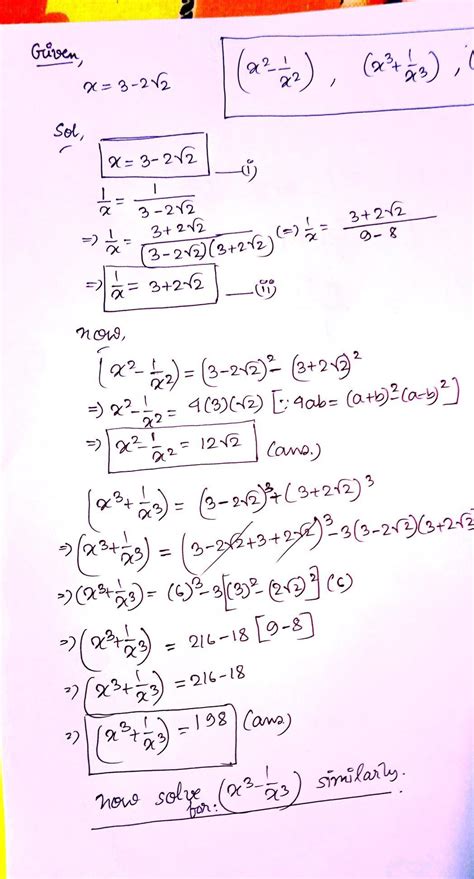 Given,
x = 3-2√2
(x²-1/x²) , (x³+1/x³) , (
Sol,
x = 3-2√2 —(i)
1/x = 1/(3-2√2)
=> 1/x = (3+2√2)/((3-2√2)(3+2√2)) (=>) 1/x = (3+2√2)/(9-8)
=> 1/x = 3+2√2 —(ii)
now,
(x²-1/x²) = (3-2√2)² - (3+2√2)²
=> x²-1/x² = 4(3)(√2) [∵ 4ab = (a+b)²-(a-b)²]
=> x²-1/x² = 12√2 (ans.)
(x³+1/x³) = (3-2√2)³+(3+2√2)³
=> (x³+1/x³) = (3-2√2+3+2√2)³-3(3-2√2)(3+2√2
=> (x³+1/x³) = (6)³-3[(3)²-(2√2)²](6)
=> (x³+1/x³) = 216-18[9-8]
=> (x³+1/x³) = 216-18
=> (x³+1/x³) = 198 (ans)
now solve for: (x³-1/x³) similarly.